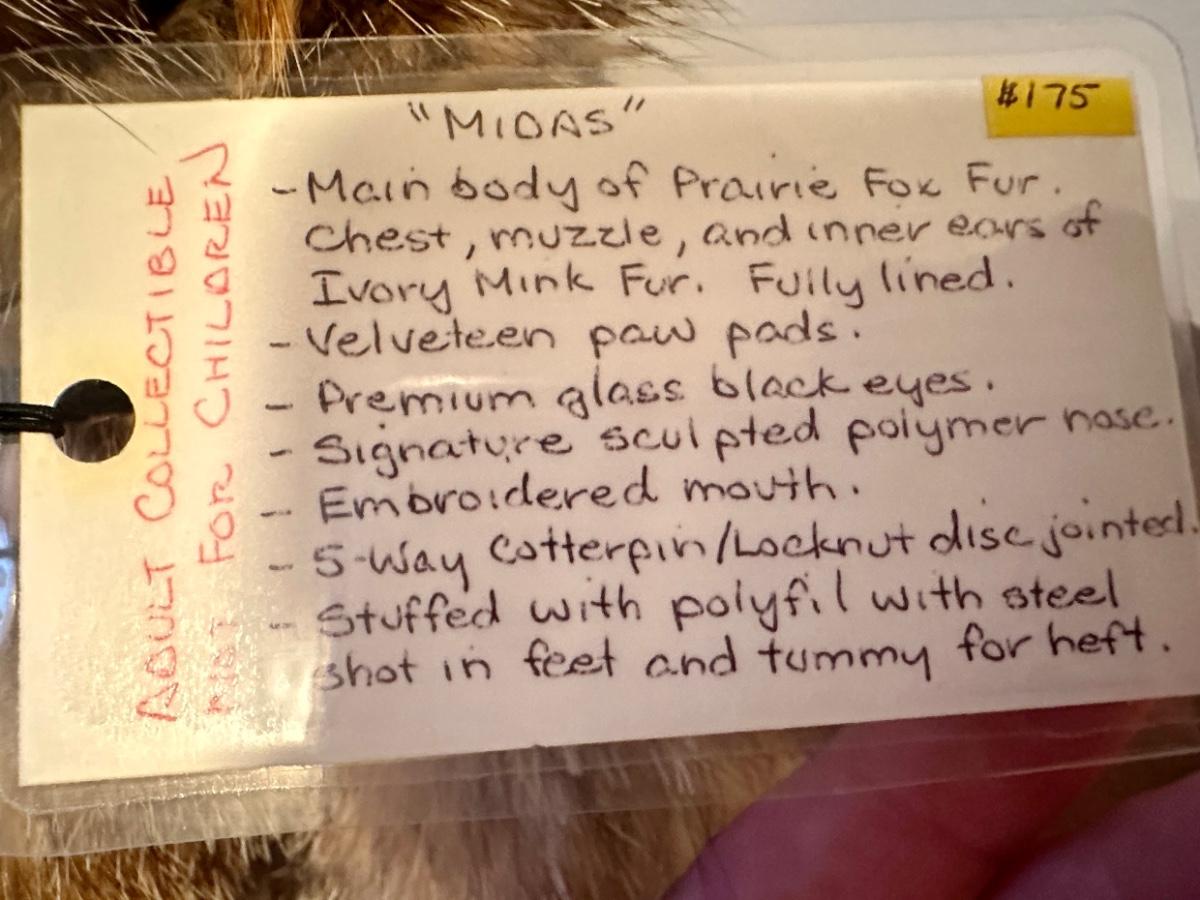 "MIDAS"
$175
- Main body of Prairie Fox Fur.
Chest, muzzle, and inner ears of
Ivory Mink Fur. Fully lined.
- Velveteen paw pads.
- Premium glass black eyes.
- Signature sculpted polymer nose.
- Embroidered mouth.
- 5-Way Cotterpin/Locknut disc jointed.
- Stuffed with polyfil with steel
shot in feet and tummy for heft.
ADULT COLLECTIBLE
NOT FOR CHILDREN